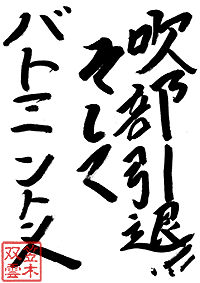 吹部引退!!
そして
バトミントン人
笠木
双雲